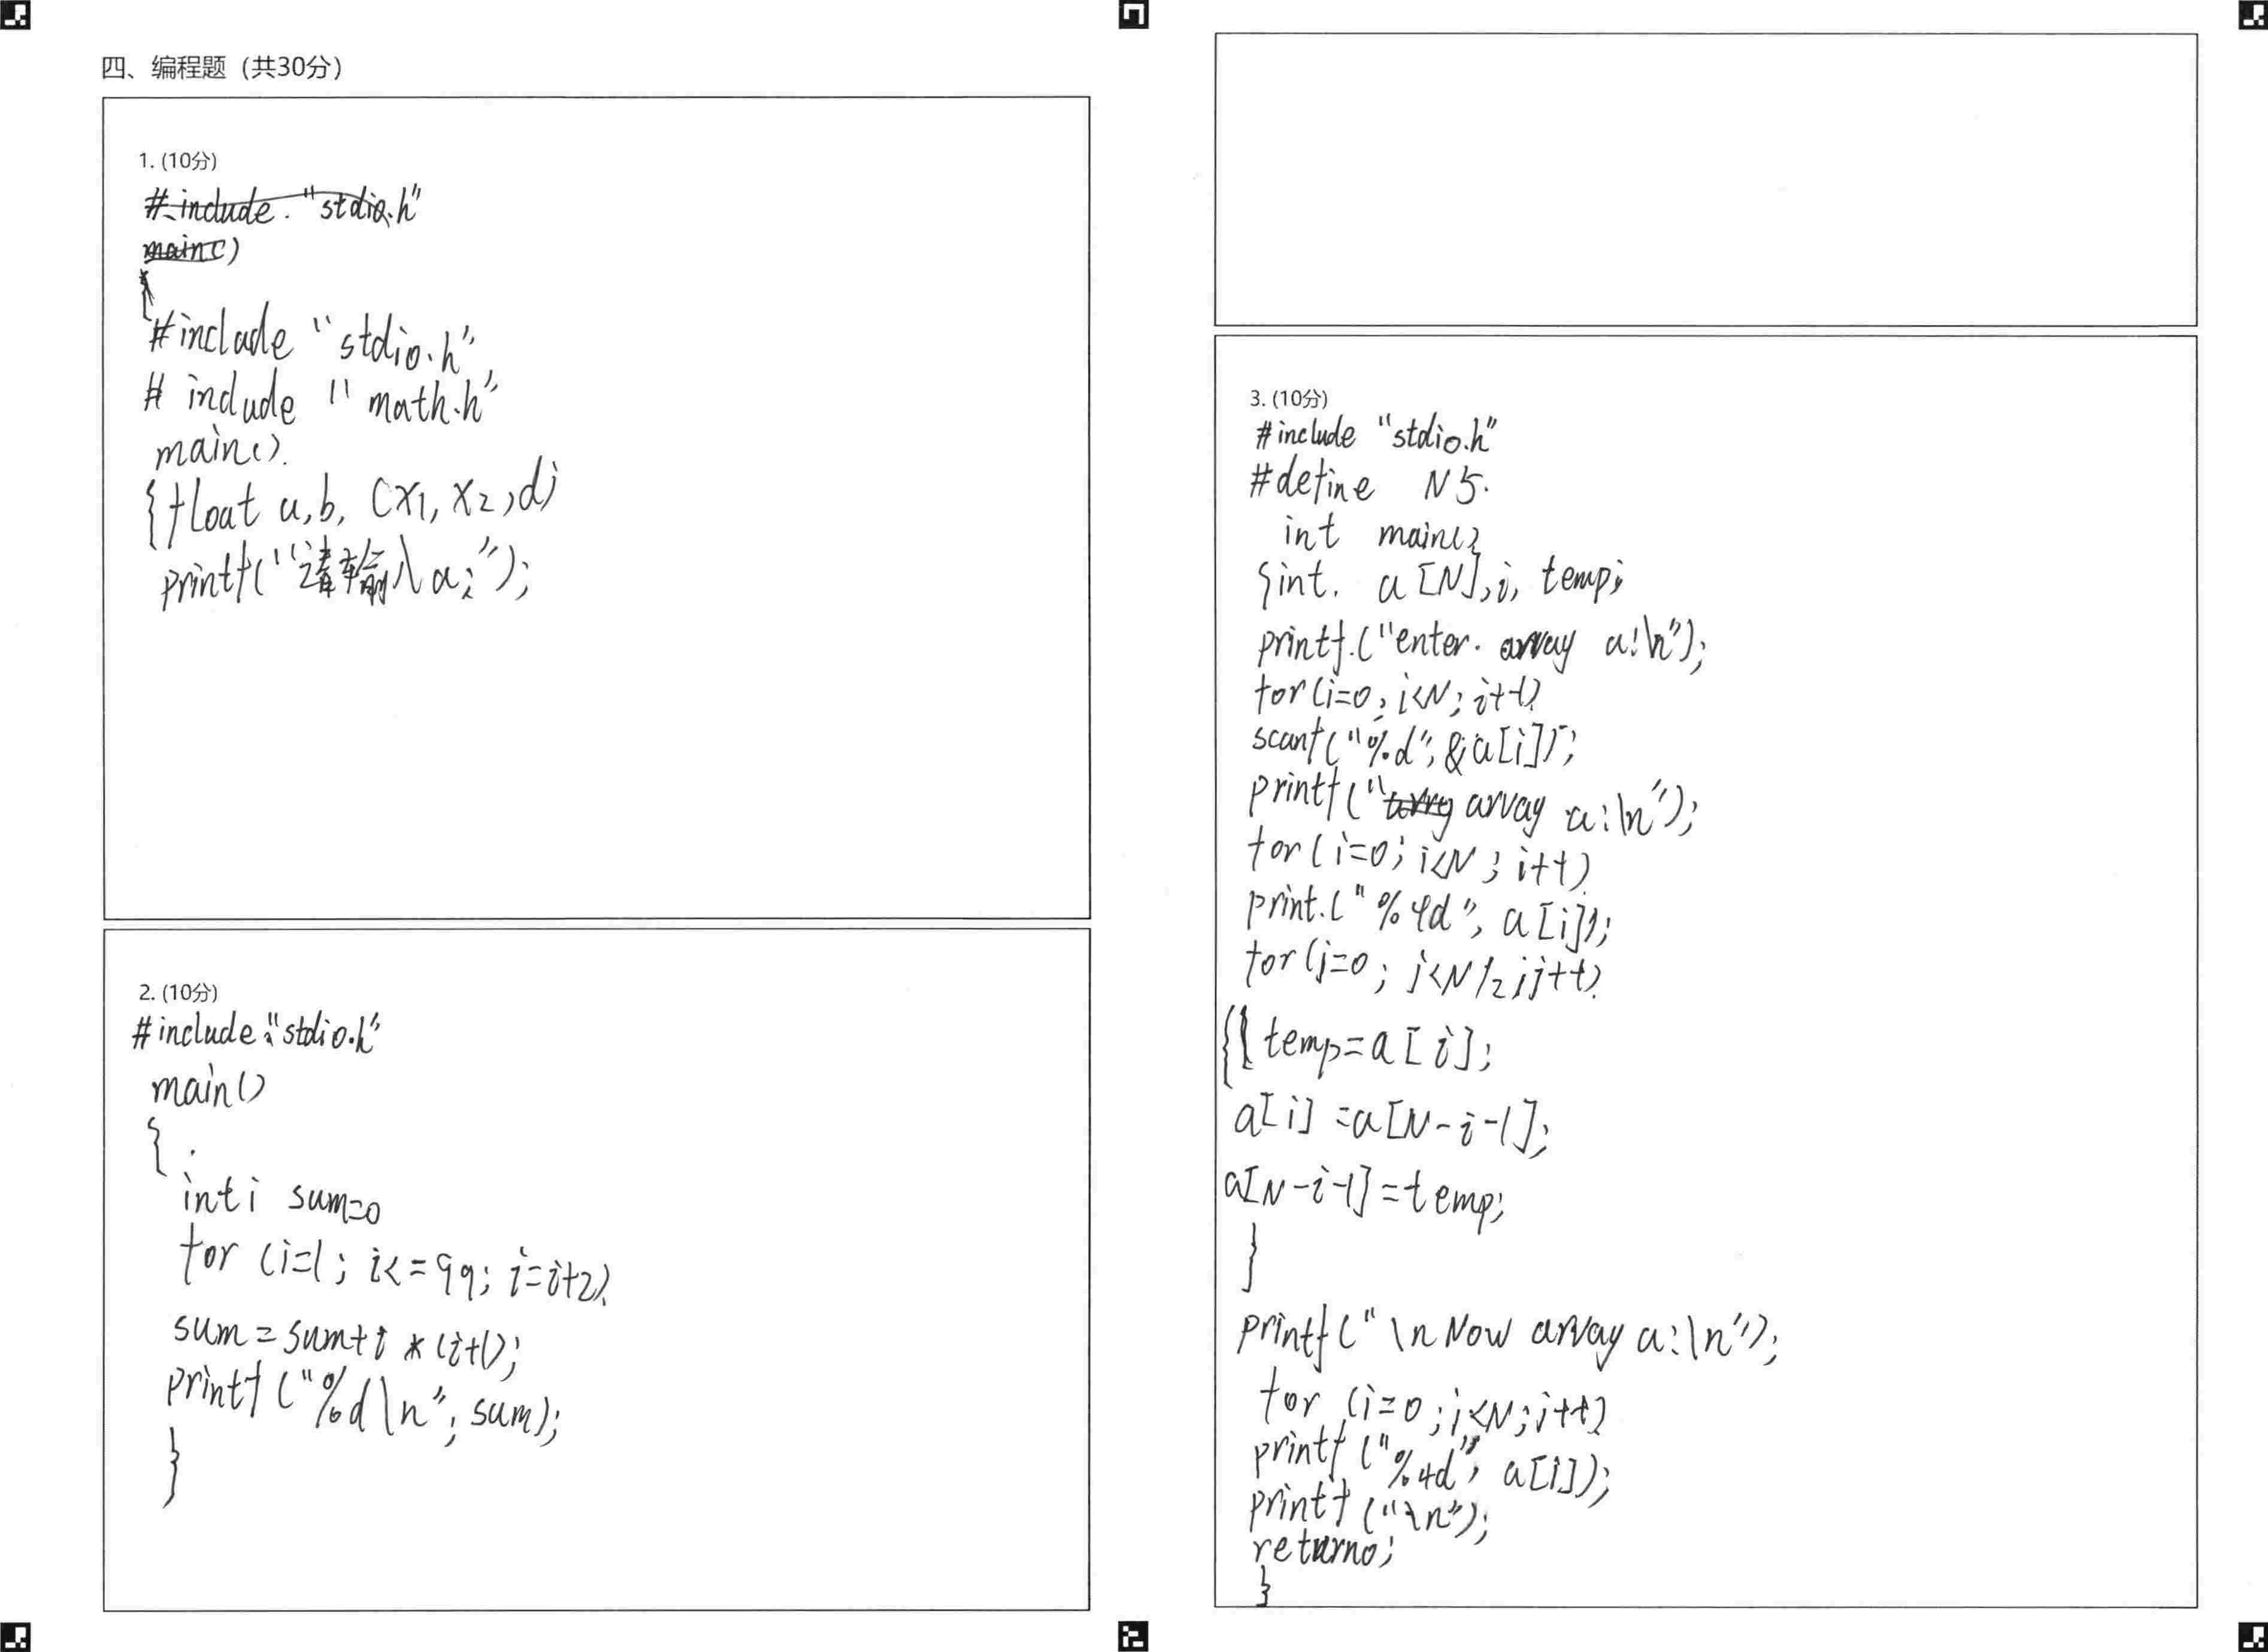 四、编程题（共30分）
1. (10分)
#include "stdio.h"
main()
{
#include "stdio.h"
# include "math.h"
main().
{float a,b, (x1, x2, d;
printf("请输入a:");
2. (10分)
#include "stdio.h"
main()
{
int i sum=0
for (i=1; i<=99; i=i+2)
sum=sum+i*(i+1);
printf("%d\n", sum);
}
3. (10分)
#include "stdio.h"
#define N 5.
int main()
{int. a[N],i, temp;
printf.("enter. array a:\n");
for(i=0; i<N; i++)
scanf("%d", &a[i]);
printf("array a:\n");
for(i=0; i<N; i++)
print.("%4d", a[i]);
for(j=0; j<N/2; j++)
{{ temp=a[i];
a[i]=a[N-i-1];
a[N-i-1]=temp;
}
printf("\n Now array a:\n");
for (i=0; i<N; i++)
printf("%4d", a[i]);
printf("\n");
return0;
}